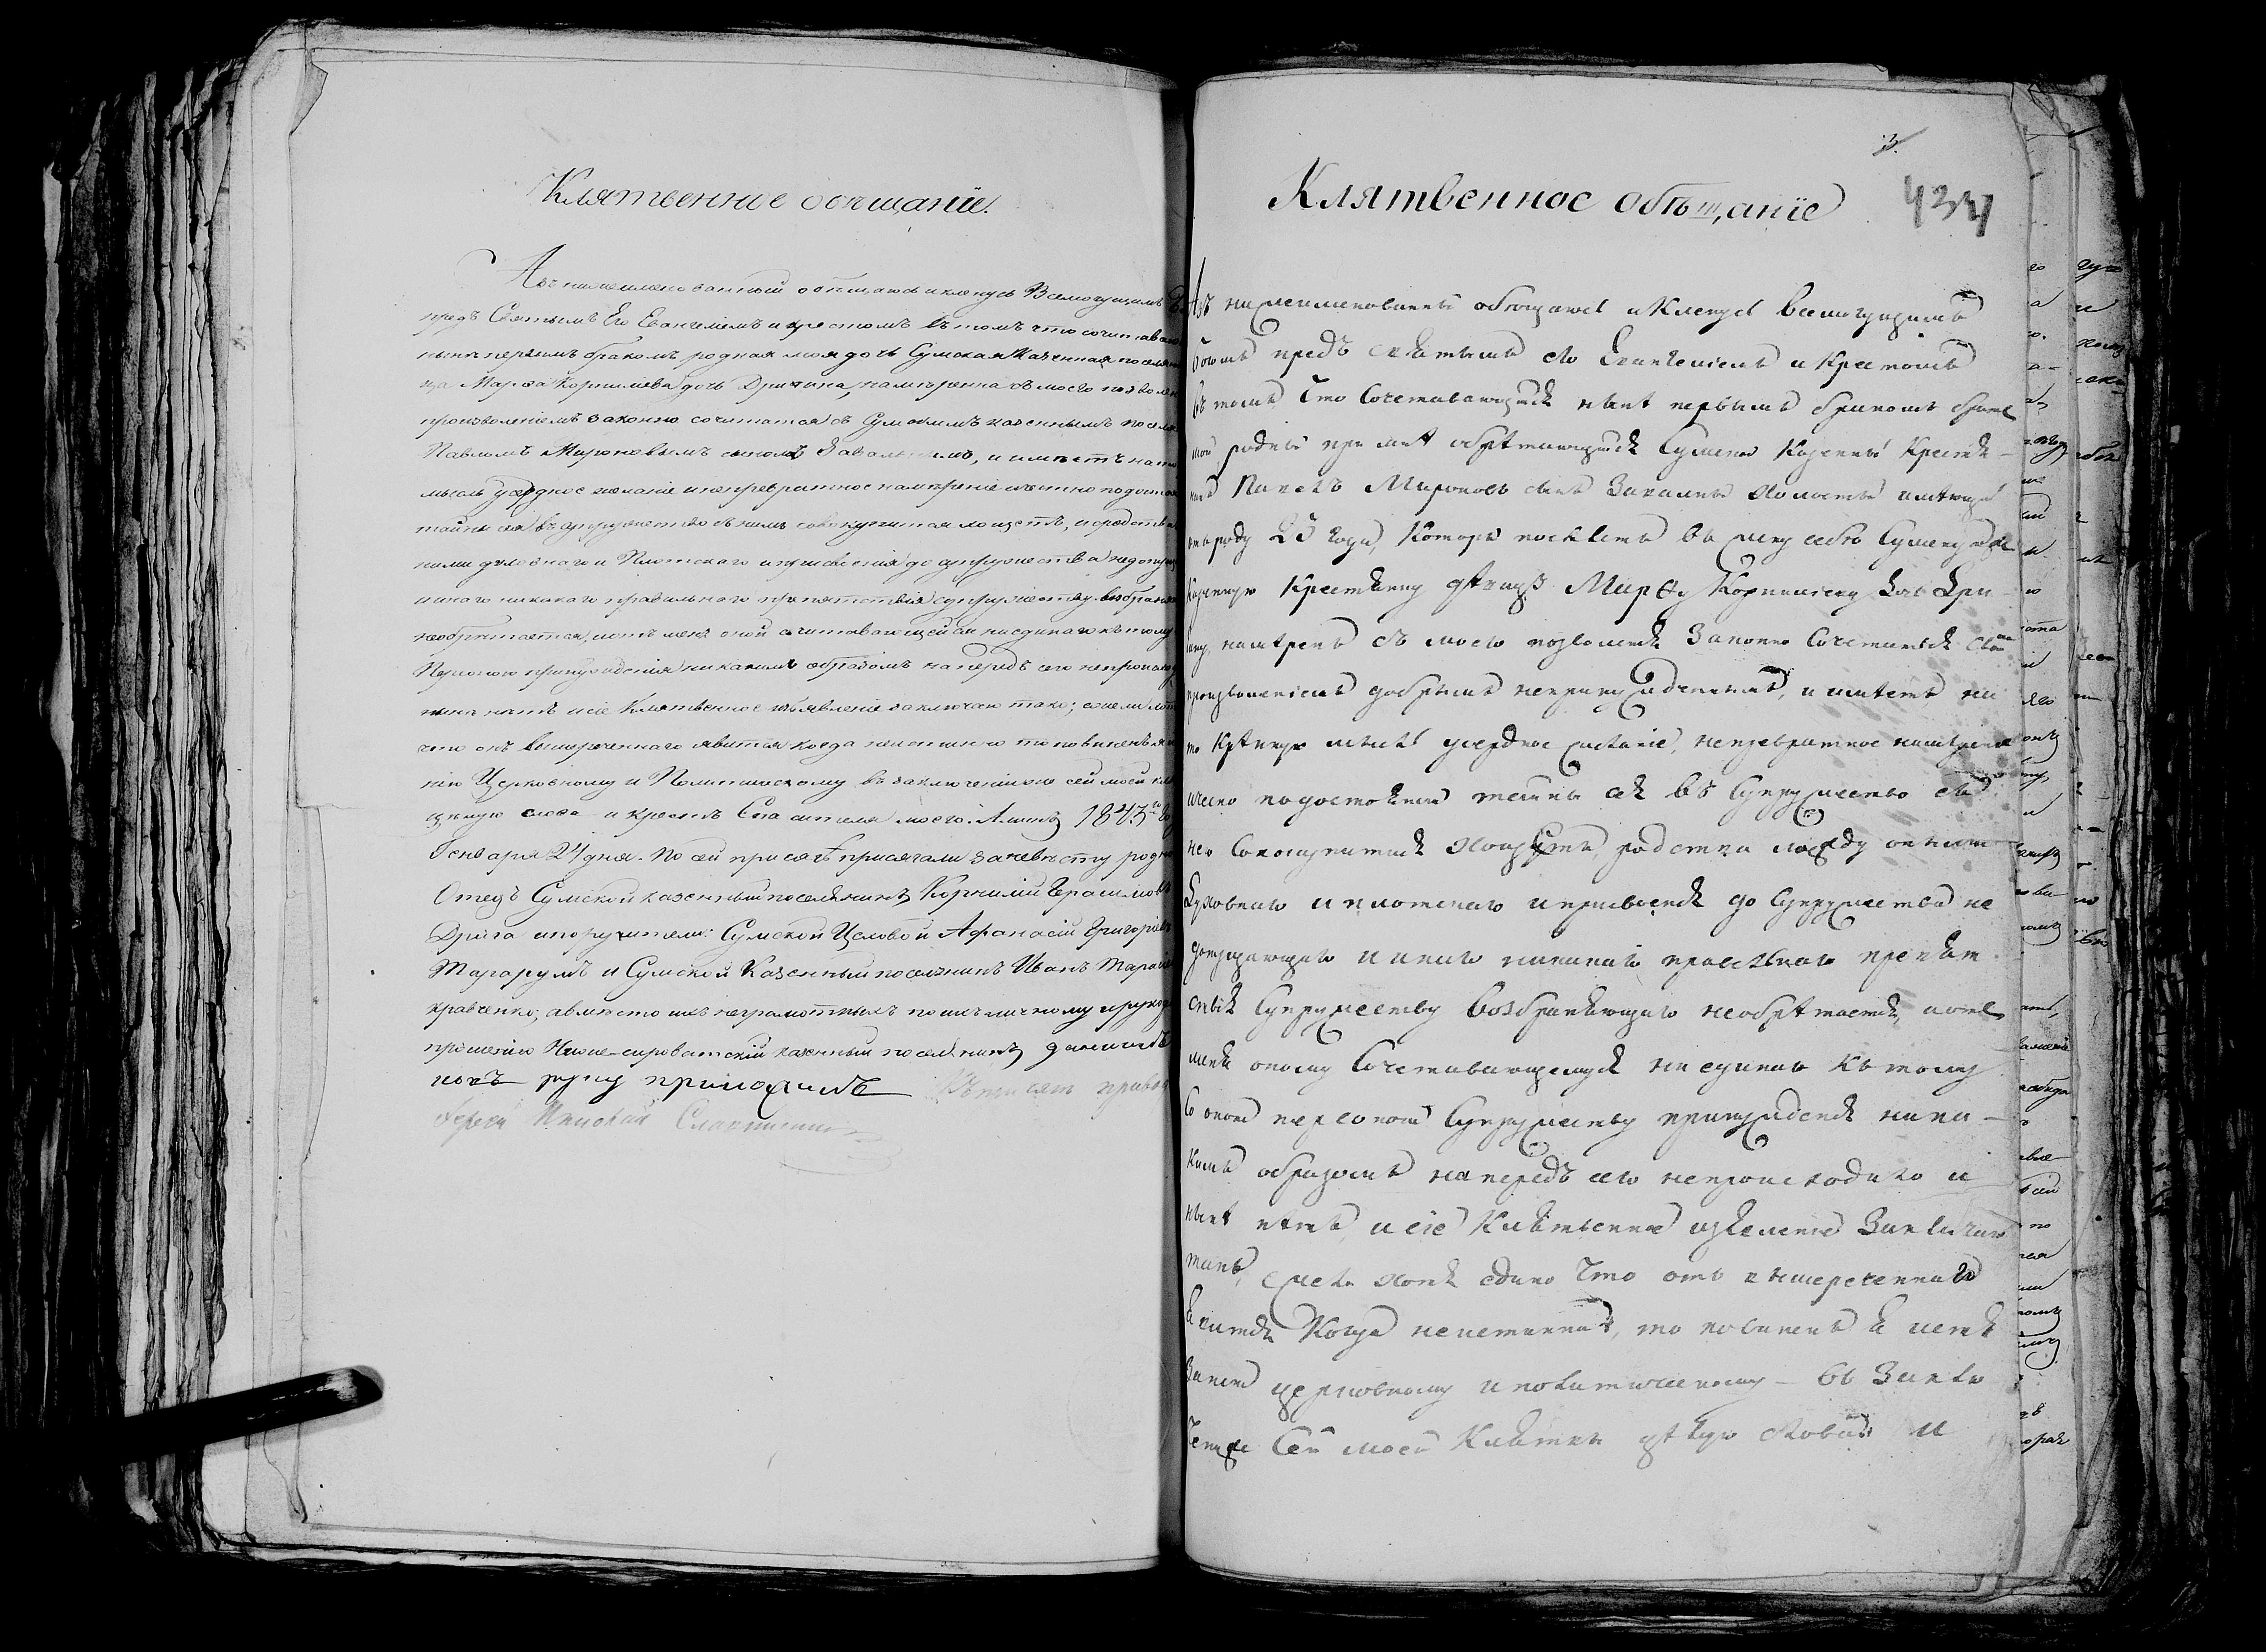 Клятвенное обѣщаніе.
Азъ нижеименованный обѣщаюсь и клянусь Всемогущимъ Б
предъ Святымъ Его Евангеліемъ и крестомъ въ томъ что сочитаваю
нынѣ первымъ бракомъ родная моя дочь Сумская Казенная поселян
ка Марѳа Корнилiева дочь Дригина, намѣренна съ моего позволен
произволеніемъ законно сочитатся съ Сумскимъ казеннымъ посел
Павломъ Мироновымъ сыномъ Завальнымъ, и имѣетъ на то
мысль усердное желаніе и непревратное намѣреніе честно по достоя
тайны сея въ супружество съ нимъ совокупится хощетъ, и сродства
ними духовнаго и Плотскаго и присвоенія до супружества недопущ
и инаго никакого правильнаго препятствія супружеству возбраня
необрѣтается, и отъ меня оной сочитавающейся ни единаго къ тому
принужденія никакимъ образомъ напередъ сего непроисход
нынѣ нѣтъ и сіе Клятвенное изъявленіе заключаю тако; ежели
что отъ вышереченнаго явится когда неистинно то повиненъ я
нію Церковному и Политическому въ заключеніи же сей моей кля
цѣлую слова и крестъ Спасителя моего. Аминь 1843го Го
Генваря 24 дня. По сей присягѣ присягали за невѣсту родн
Отецъ Сумской казенный поселянинъ Корнилій Герасимовъ
Дрига и поручители: Сумской Цеховой Афанасій Григорьев
и Сумской Казенный поселянинъ Иванъ Тарас
кравченко, а вмѣсто ихъ неграмотныхъ по ихъ личному и рукода
прошенію Нижне-сироватскій казенный поселянинъ
руку приложилъ Къ присягѣ привод
Іерей
3.
Клятвенное обѣщаніе 434
Азъ нижеименованный обѣщаюсь и Клянусь всемогущимъ
богомъ предъ святымъ его Евангеліемъ и Крестомъ
въ томъ Что Сочетавающійся нынѣ первымъ бракомъ братъ
мой родный при мнѣ обрѣтающійся Сумской Казенный Крестья-
нинъ Павелъ Мироновъ сынъ Завалный холостый имѣющій
отъ роду 23 года, Который поемлетъ въ жену себѣ Сумскую
Казенную Крестьянку дѣвицу Марѳу Корнилiеву дочь Дри-
гину, намѣренъ съ моего позволенія Законно Сочетатся своимъ
произволеніемъ добрымъ непринужденнымъ, и имѣетъ на
то Крѣпкую мысль усердное желаніе, непревратное намѣреніе
честно по достоянію тайны сея въ Супружество съ
нею Совокупитися хощетъ, родства между оними
Духовнаго и плотскаго и присвоенія до Супружества не
допущающаго и инаго никакого правилнаго препят
ствія Супружеству Возбраняющаго необрѣтается, и отъ
меня оному Сочетавающемуся ни единаго къ тому
Со оною персоною Супружеству принужденія ника-
кимъ образомъ напередъ сего непроисходило и
нынѣ нѣтъ, и сіе Клятвенное изъявленіе Заключаю
тако, ежели хотя едино Что отъ вышереченнаго
явится Когда неистинное, то повиненъ я истя
занію церковному и политическому - въ Заклю
ченіе Сей моей Клятвы цѣлую слова и